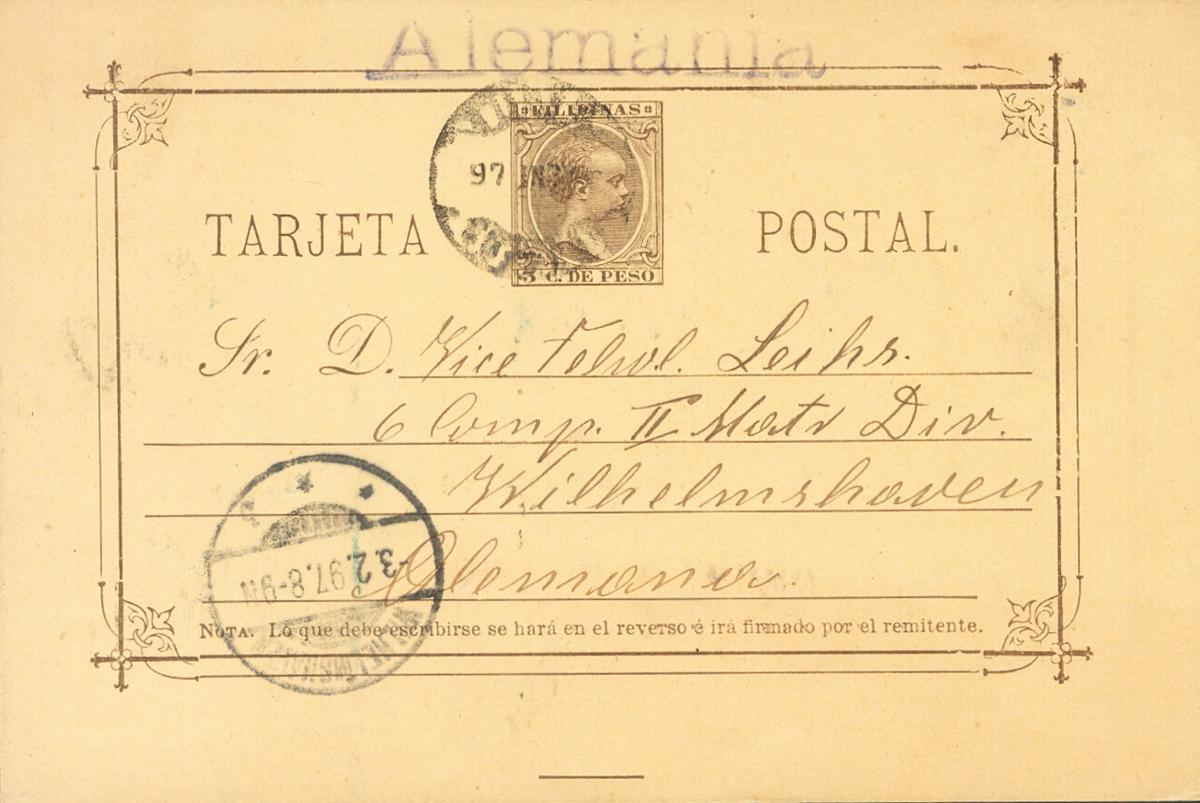 Alemania
FILIPINAS
97
TARJETA POSTAL.
3 C. DE PESO
Sr. D. Vice Felw. Leihs.
6 Comp. II Matr Div.
Wilhelmshaven
-3.2.97.8-9N
Alemana.
NOTA. Lo que debe escribirse se hará en el reverso é irá firmado por el remitente.
WILHELMSHAVEN